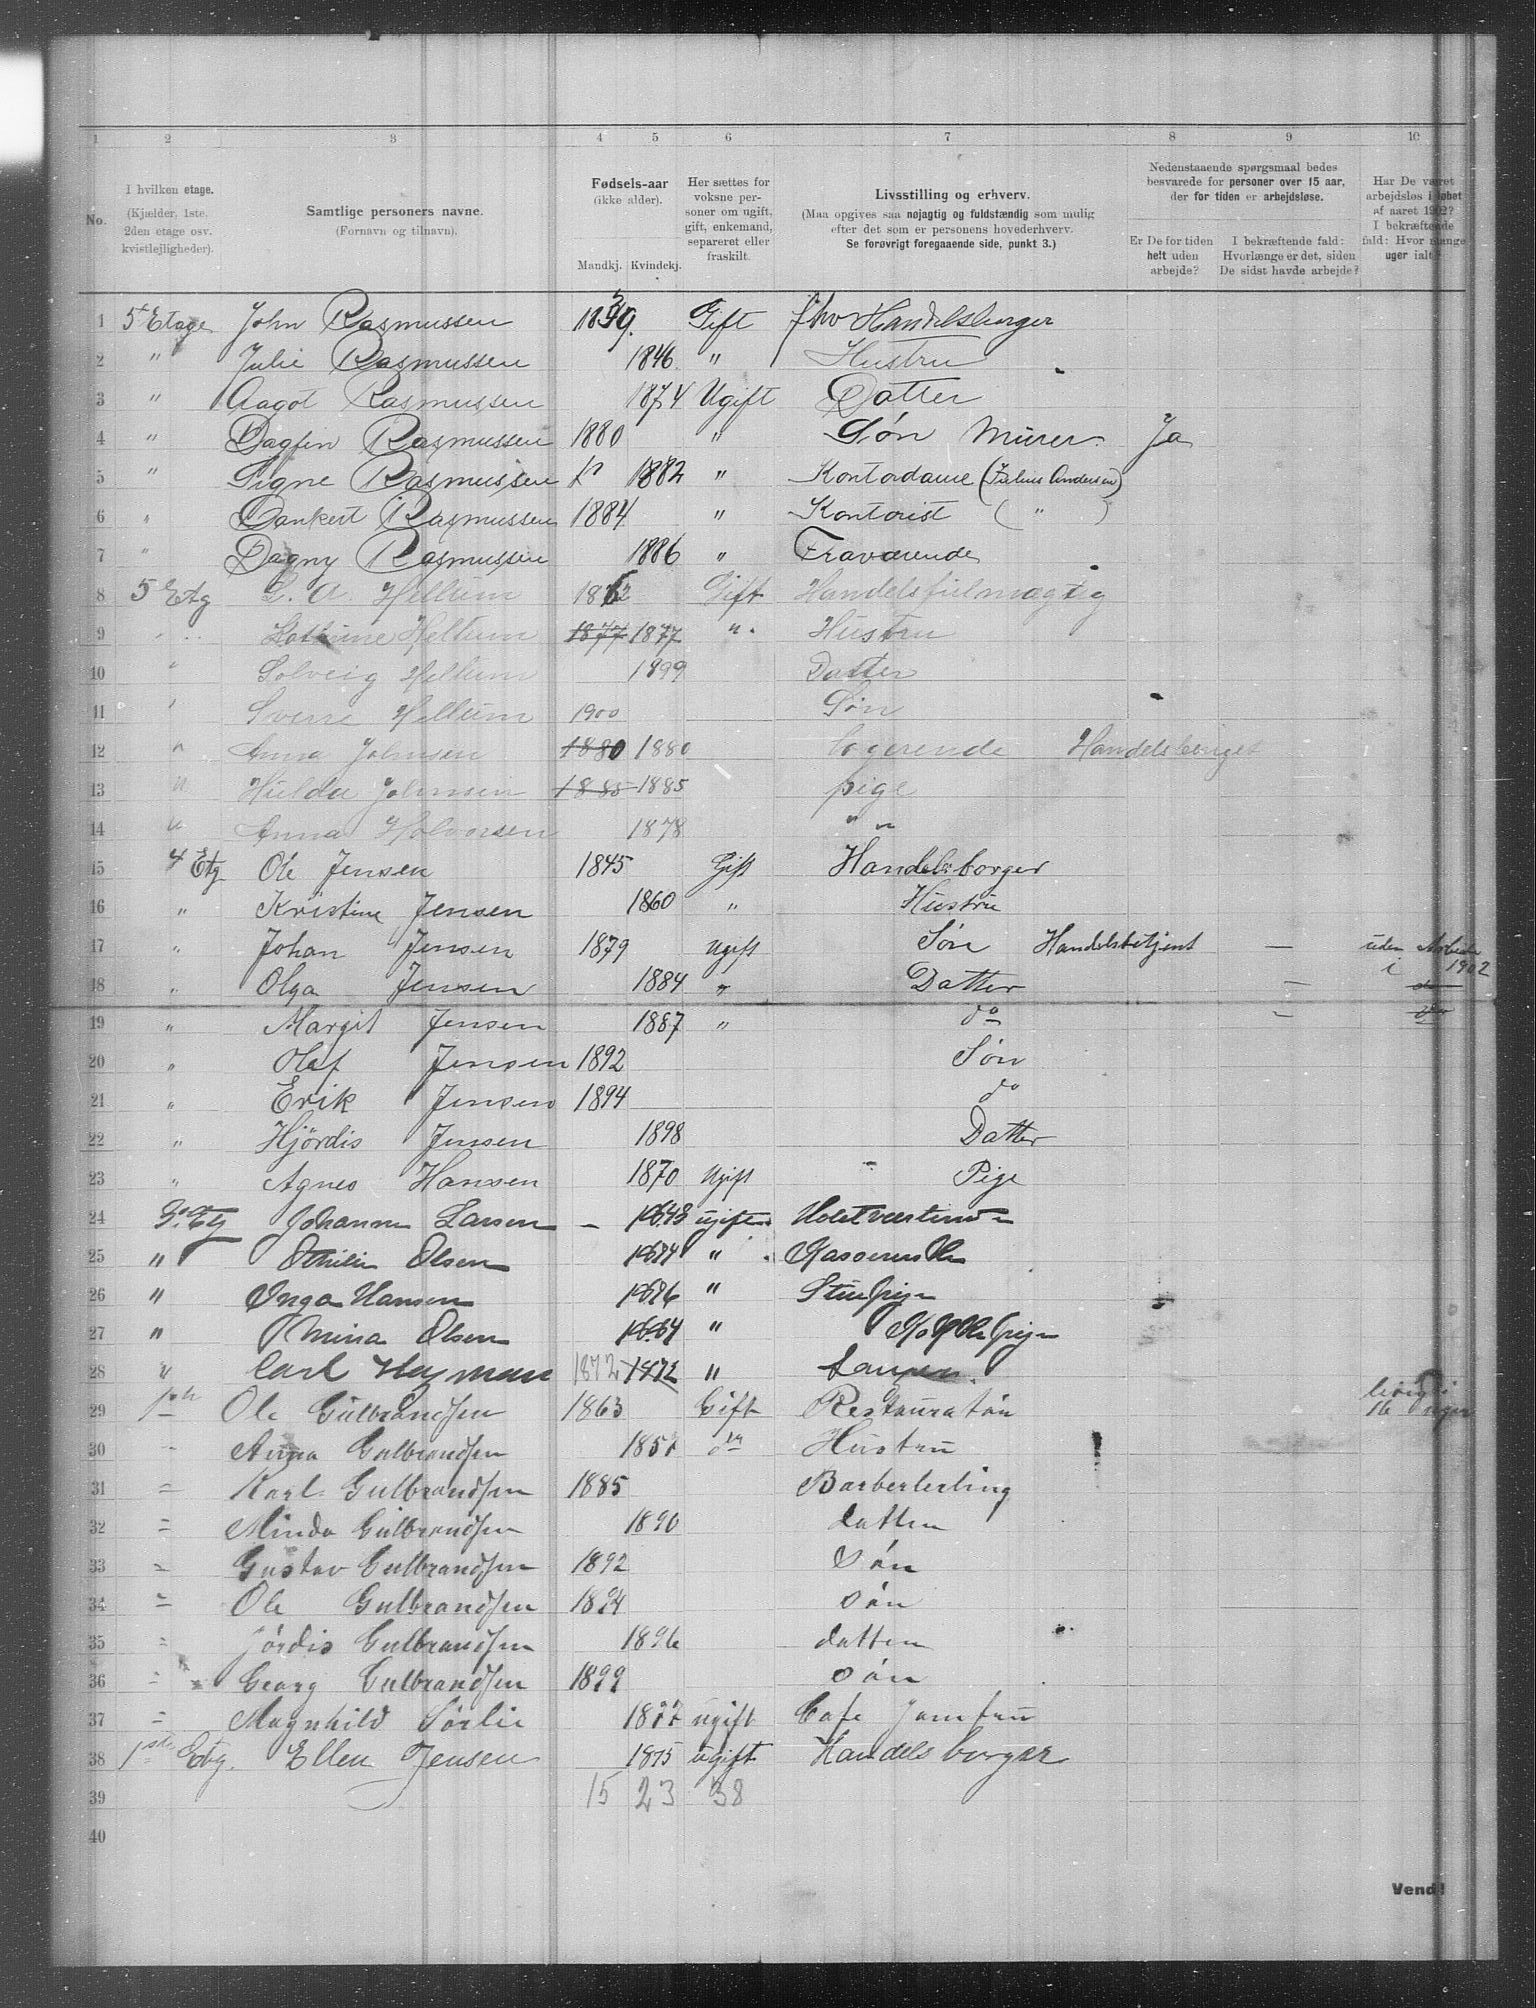 1 2 3 4 5 6 7 8 9 10
No.
I hvilken etage.
(Kjælder, 1ste. 2den etage osv. kvistlejligheder).
Samtlige personers navne.
(Fornavn og tilnavn).
Fødsels-aar
(ikke alder).
Mandkj. Kvindekj.
Her sættes for voksne personer om ugift, gift, enkemand, separeret eller fraskilt.
Livsstilling og erhverv.
(Maa opgives saa nøjagtig og fuldstændig som mulig efter det som er personens hovederhverv.
Se forøvrigt foregaaende side, punkt 3.)
Nedenstaaende spørgsmaal bedes besvarede for personer over 15 aar, der for tiden er arbejdsløse.
Er De for tiden helt uden arbejde?
I bekræftende fald: Hvorlænge er det, siden De sidst havde arbejde?
Har De været arbejdsløs i løbet af aaret 1902? I bekræftende fald: Hvor mange uger ialt?
1 5 Etage John Rasmussen 1839. Gift fhv Handelsborger
2 " Julie Rasmussen 1846 " Hustru
3 " Aagot Rasmussen 1874 Ugift Datter
4 " Dagfin Rasmussen 1880 " Søn Murer Ja
5 " Signe Rasmussen 1882 " Kontordame (Julius Andersen)
6 " Dankert Rasmussen 1884 " Kontorist ( " )
7 " Dagny Rasmussen 1886 " Fraværende
8 5 Etg A Hellum Gift Handelsfulmægtig
9 Hellum 1877 1877 " Hustru
10 " Solveig Hellum 1899 Datter
11 " Sverre Hellum 1900 Søn
12 " Anna Johnsen 1880 1880 logerende Handelsborget
13 " Hulda Johnsen 1885 1885 pige
14 " Anna Holvorsen 1878 " "
15 4 Etg Ole Jensen 1845 Gift Handelsborger
16 " Kristine Jensen 1860 " Hustru
17 " Johan Jensen 1879 Ugift Søn Handelsbetjent — uden Arbeide i 1902
18 " Olga Jensen 1884 " Datter — do
19 " Margit Jensen 1887 " do — do
20 " Olaf Jensen 1892 Søn
21 " Erik Jensen 1894 do
22 " Hjördis Jensen 1898 Datter
23 " Agnes Hansen 1870 Ugift Pige
24 3die Etg Johanne Larsen — 1843 ugift
25 " Othilie Olsen 1874 "
26 " Inga Hansen 1876 " Stuepige
27 " Mina Olsen 1864 "
28 " Carl 1872 1872 "
29 Ole Gülbrandsen 1863 Gift Restauratør 16 uger
30 Anna Gulbrandsen do Hustru
31 Karl Gulbrandsen 1885 Barberlerling
32 Minda Gülbrandsen 1890 datter
33 Gustav Gulbrandsen 1892 Søn
34 Ole Gulbrandsen 1894 søn
35 Jórdis Gulbrandsen 1896 datter
36 Georg Gulbrandsen 1899 søn
37 Magnhild Sørlie 1877 ugift Cafe Jomfru
38 1ste Etg. Ellen Jensen 1875 ugift Handelsborger
39 15 23 38
40
Vend!